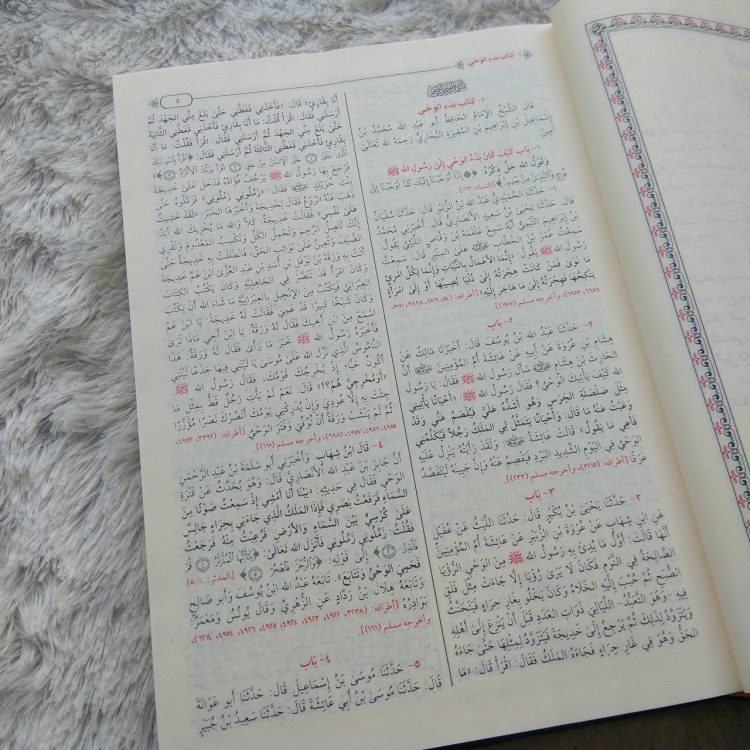 ١- كتاب بدء الوحي
٥
١- كتاب بدء الوحي
قَالَ الشَّيْخُ الإِمَامُ الحَافِظُ أَبُو عَبْدِ اللهِ مُحَمَّدُ بْنُ
إِسْمَاعِيلَ بْنِ إِبْرَاهِيمَ بْنِ المُغِيرَةِ البُخَارِيُّ رَحِمَهُ اللهُ تَعَالَى
آمِينَ:
١- بَاب كَيْفَ كَانَ بَدْءُ الوَحْيِ إِلَىٰ رَسُولِ اللهِ ﷺ
وَقَوْلُ اللهِ جَلَّ ذِكْرُهُ: ﴿إِنَّا أَوْحَيْنَا إِلَيْكَ كَمَا أَوْحَيْنَا إِلَىٰ
نُوحٍ وَالنَّبِيِّينَ مِنْ بَعْدِهِ﴾ [النساء: ١٦٣]
١- حَدَّثَنَا الحُمَيْدِيُّ عَبْدُ اللهِ بْنُ الزُّبَيْرِ قَالَ: حَدَّثَنَا سُفْيَانُ
قَالَ: حَدَّثَنَا يَحْيَىٰ بْنُ سَعِيدٍ الأَنْصَارِيُّ قَالَ: أَخْبَرَنِي مُحَمَّدُ
بْنُ إِبْرَاهِيمَ التَّيْمِيُّ أَنَّهُ سَمِعَ عَلْقَمَةَ بْنَ وَقَّاصٍ اللَّيْثِيَّ يَقُولُ:
سَمِعْتُ عُمَرَ بْنَ الخَطَّابِ عَلَى المِنْبَرِ قَالَ: سَمِعْتُ
رَسُولَ اللهِ ﷺ يَقُولُ: «إِنَّمَا الأَعْمَالُ بِالنِّيَّاتِ وَإِنَّمَا لِكُلِّ امْرِئٍ
مَا نَوَىٰ فَمَنْ كَانَتْ هِجْرَتُهُ إِلَىٰ دُنْيَا يُصِيبُهَا أَوْ إِلَى امْرَأَةٍ
يَنْكِحُهَا فَهِجْرَتُهُ إِلَىٰ مَا هَاجَرَ إِلَيْهِ» [أطرافه: ٥٤، ٢٥٢٩، ٣٨٩٨، ٥٠٧٠،
٦٦٨٩، ٦٩٥٣، وأخرجه مسلم (١٩٠٧)]
٢- بَاب
٢- حَدَّثَنَا عَبْدُ اللهِ بْنُ يُوسُفَ قَالَ: أَخْبَرَنَا مَالِكٌ عَنْ
هِشَامِ بْنِ عُرْوَةَ عَنْ أَبِيهِ عَنْ عَائِشَةَ أُمِّ المُؤْمِنِينَ أَنَّ
الحَارِثَ بْنَ هِشَامٍ سَأَلَ رَسُولَ اللهِ ﷺ فَقَالَ: يَا رَسُولَ
اللهِ كَيْفَ يَأْتِيكَ الوَحْيُ؟ فَقَالَ رَسُولُ اللهِ ﷺ: «أَحْيَانًا يَأْتِينِي
مِثْلَ صَلْصَلَةِ الجَرَسِ وَهُوَ أَشَدُّهُ عَلَيَّ فَيُفْصَمُ عَنِّي وَقَدْ
وَعَيْتُ عَنْهُ مَا قَالَ، وَأَحْيَانًا يَتَمَثَّلُ لِي المَلَكُ رَجُلًا فَيُكَلِّمُنِي
فَأَعِي مَا يَقُولُ» قَالَتْ عَائِشَةُ: وَلَقَدْ رَأَيْتُهُ يَنْزِلُ عَلَيْهِ
الوَحْيُ فِي اليَوْمِ الشَّدِيدِ البَرْدِ فَيَفْصِمُ عَنْهُ وَإِنَّ جَبِينَهُ لَيَتَفَصَّدُ
عَرَقًا [أطرافه: (٣٢١٥)، وأخرجه مسلم (٢٣٣٣)]
٣- بَاب
٣- حَدَّثَنَا يَحْيَىٰ بْنُ بُكَيْرٍ قَالَ: حَدَّثَنَا اللَّيْثُ عَنْ عُقَيْلٍ
عَنِ ابْنِ شِهَابٍ عَنْ عُرْوَةَ بْنِ الزُّبَيْرِ عَنْ عَائِشَةَ أُمِّ المُؤْمِنِينَ
أَنَّهَا قَالَتْ: أَوَّلُ مَا بُدِئَ بِهِ رَسُولُ اللهِ ﷺ مِنَ الوَحْيِ الرُّؤْيَا
الصَّالِحَةُ فِي النَّوْمِ فَكَانَ لَا يَرَىٰ رُؤْيَا إِلَّا جَاءَتْ مِثْلَ فَلَقِ
الصُّبْحِ ثُمَّ حُبِّبَ إِلَيْهِ الخَلَاءُ وَكَانَ يَخْلُو بِغَارِ حِرَاءٍ فَيَتَحَنَّثُ
فِيهِ -وَهُوَ التَّعَبُّدُ- اللَّيَالِيَ ذَوَاتِ العَدَدِ قَبْلَ أَنْ يَنْزِعَ إِلَىٰ أَهْلِهِ
وَيَتَزَوَّدُ لِذَلِكَ ثُمَّ يَرْجِعُ إِلَىٰ خَدِيجَةَ فَيَتَزَوَّدُ لِمِثْلِهَا حَتَّىٰ جَاءَهُ
الحَقُّ وَهُوَ فِي غَارِ حِرَاءٍ فَجَاءَهُ المَلَكُ فَقَالَ: اقْرَأْ قَالَ: «مَا
أَنَا بِقَارِئٍ» قَالَ: «فَأَخَذَنِي فَغَطَّنِي حَتَّىٰ بَلَغَ مِنِّي الجَهْدَ ثُمَّ
أَرْسَلَنِي فَقَالَ: اقْرَأْ قُلْتُ: مَا أَنَا بِقَارِئٍ فَأَخَذَنِي فَغَطَّنِي الثَّانِيَةَ
حَتَّىٰ بَلَغَ مِنِّي الجَهْدَ ثُمَّ أَرْسَلَنِي فَقَالَ: اقْرَأْ فَقُلْتُ: مَا أَنَا
بِقَارِئٍ فَأَخَذَنِي فَغَطَّنِي الثَّالِثَةَ ثُمَّ أَرْسَلَنِي فَقَالَ: ﴿اقْرَأْ بِاسْمِ رَبِّكَ
الَّذِي خَلَقَ خَلَقَ الْإِنْسَانَ مِنْ عَلَقٍ اقْرَأْ وَرَبُّكَ الْأَكْرَمُ﴾»
فَرَجَعَ بِهَا رَسُولُ اللهِ ﷺ يَرْجُفُ فُؤَادُهُ فَدَخَلَ عَلَىٰ خَدِيجَةَ
بِنْتِ خُوَيْلِدٍ فَقَالَ: «زَمِّلُونِي زَمِّلُونِي» فَزَمَّلُوهُ حَتَّىٰ
ذَهَبَ عَنْهُ الرَّوْعُ فَقَالَ لِخَدِيجَةَ وَأَخْبَرَهَا الخَبَرَ: «لَقَدْ خَشِيتُ
عَلَىٰ نَفْسِي» فَقَالَتْ خَدِيجَةُ: كَلَّا وَاللهِ مَا يُخْزِيكَ اللهُ أَبَدًا
إِنَّكَ لَتَصِلُ الرَّحِمَ وَتَحْمِلُ الكَلَّ وَتَكْسِبُ المَعْدُومَ وَتَقْرِي
الضَّيْفَ وَتُعِينُ عَلَىٰ نَوَائِبِ الحَقِّ، فَانْطَلَقَتْ بِهِ خَدِيجَةُ حَتَّىٰ
أَتَتْ بِهِ وَرَقَةَ بْنَ نَوْفَلِ بْنِ أَسَدِ بْنِ عَبْدِ العُزَّى ابْنَ عَمِّ خَدِيجَةَ
وَكَانَ امْرَأً قَدْ تَنَصَّرَ فِي الجَاهِلِيَّةِ وَكَانَ يَكْتُبُ الكِتَابَ
العِبْرَانِيَّ فَيَكْتُبُ مِنَ الإِنْجِيلِ بِالعِبْرَانِيَّةِ مَا شَاءَ اللهُ أَنْ يَكْتُبَ
وَكَانَ شَيْخًا كَبِيرًا قَدْ عَمِيَ فَقَالَتْ لَهُ خَدِيجَةُ: يَا ابْنَ عَمِّ
اسْمَعْ مِنَ ابْنِ أَخِيكَ فَقَالَ لَهُ وَرَقَةُ: يَا ابْنَ أَخِي مَاذَا تَرَىٰ
فَأَخْبَرَهُ رَسُولُ اللهِ ﷺ خَبَرَ مَا رَأَىٰ فَقَالَ لَهُ وَرَقَةُ: هَذَا
النَّامُوسُ الَّذِي نَزَّلَ اللهُ عَلَىٰ مُوسَىٰ يَا لَيْتَنِي فِيهَا جَذَعًا لَيْتَنِي
أَكُونُ حَيًّا؛ إِذْ يُخْرِجُكَ قَوْمُكَ، فَقَالَ رَسُولُ اللهِ ﷺ:
«أَوَمُخْرِجِيَّ هُمْ؟!» قَالَ: نَعَمْ لَمْ يَأْتِ رَجُلٌ قَطُّ بِمِثْلِ مَا
جِئْتَ بِهِ إِلَّا عُودِيَ وَإِنْ يُدْرِكْنِي يَوْمُكَ أَنْصُرْكَ نَصْرًا مُؤَزَّرًا
ثُمَّ لَمْ يَنْشَبْ وَرَقَةُ أَنْ تُوُفِّيَ وَفَتَرَ الوَحْيُ [أطرافه: ٣٣٩٢، ٤٩٥٣،
٤٩٥٥، ٤٩٥٦، ٤٩٥٧، ٦٩٨٢، وأخرجه مسلم (١٦٠)]
٤- قَالَ ابْنُ شِهَابٍ: وَأَخْبَرَنِي أَبُو سَلَمَةَ بْنُ عَبْدِ الرَّحْمَنِ
أَنَّ جَابِرَ بْنَ عَبْدِ اللهِ الأَنْصَارِيَّ قَالَ، وَهُوَ يُحَدِّثُ عَنْ فَتْرَةِ
الوَحْيِ فَقَالَ فِي حَدِيثِهِ: «بَيْنَا أَنَا أَمْشِي إِذْ سَمِعْتُ صَوْتًا مِنَ
السَّمَاءِ فَرَفَعْتُ بَصَرِي فَإِذَا المَلَكُ الَّذِي جَاءَنِي بِحِرَاءٍ جَالِسٌ
عَلَىٰ كُرْسِيٍّ بَيْنَ السَّمَاءِ وَالأَرْضِ فَرُعِبْتُ مِنْهُ فَرَجَعْتُ
فَقُلْتُ: زَمِّلُونِي زَمِّلُونِي فَأَنْزَلَ اللهُ تَعَالَىٰ: ﴿يَا أَيُّهَا الْمُدَّثِّرُ قُمْ
فَأَنْذِرْ﴾ إِلَىٰ قَوْلِهِ: ﴿وَالرُّجْزَ فَاهْجُرْ﴾ [المدثر: ١-٥]
فَحَمِيَ الوَحْيُ وَتَتَابَعَ». تَابَعَهُ عَبْدُ اللهِ ابْنُ يُوسُفَ وَأَبُو صَالِحٍ
وَتَابَعَهُ هِلَالُ بْنُ رَدَّادٍ عَنِ الزُّهْرِيِّ وَقَالَ يُونُسُ وَمَعْمَرٌ:
بَوَادِرُهُ [أطرافه: ٣٢٣٨، ٤٩٢٢، ٤٩٢٣، ٤٩٢٤، ٤٩٢٥، ٤٩٢٦، ٤٩٥٤، ٦٢١٤،
وأخرجه مسلم (١٦١)]
٤- بَاب
٥- حَدَّثَنَا مُوسَىٰ بْنُ إِسْمَاعِيلَ قَالَ: حَدَّثَنَا أَبُو عَوَانَةَ
قَالَ: حَدَّثَنَا مُوسَىٰ بْنُ أَبِي عَائِشَةَ قَالَ: حَدَّثَنَا سَعِيدُ بْنُ جُبَيْرٍ